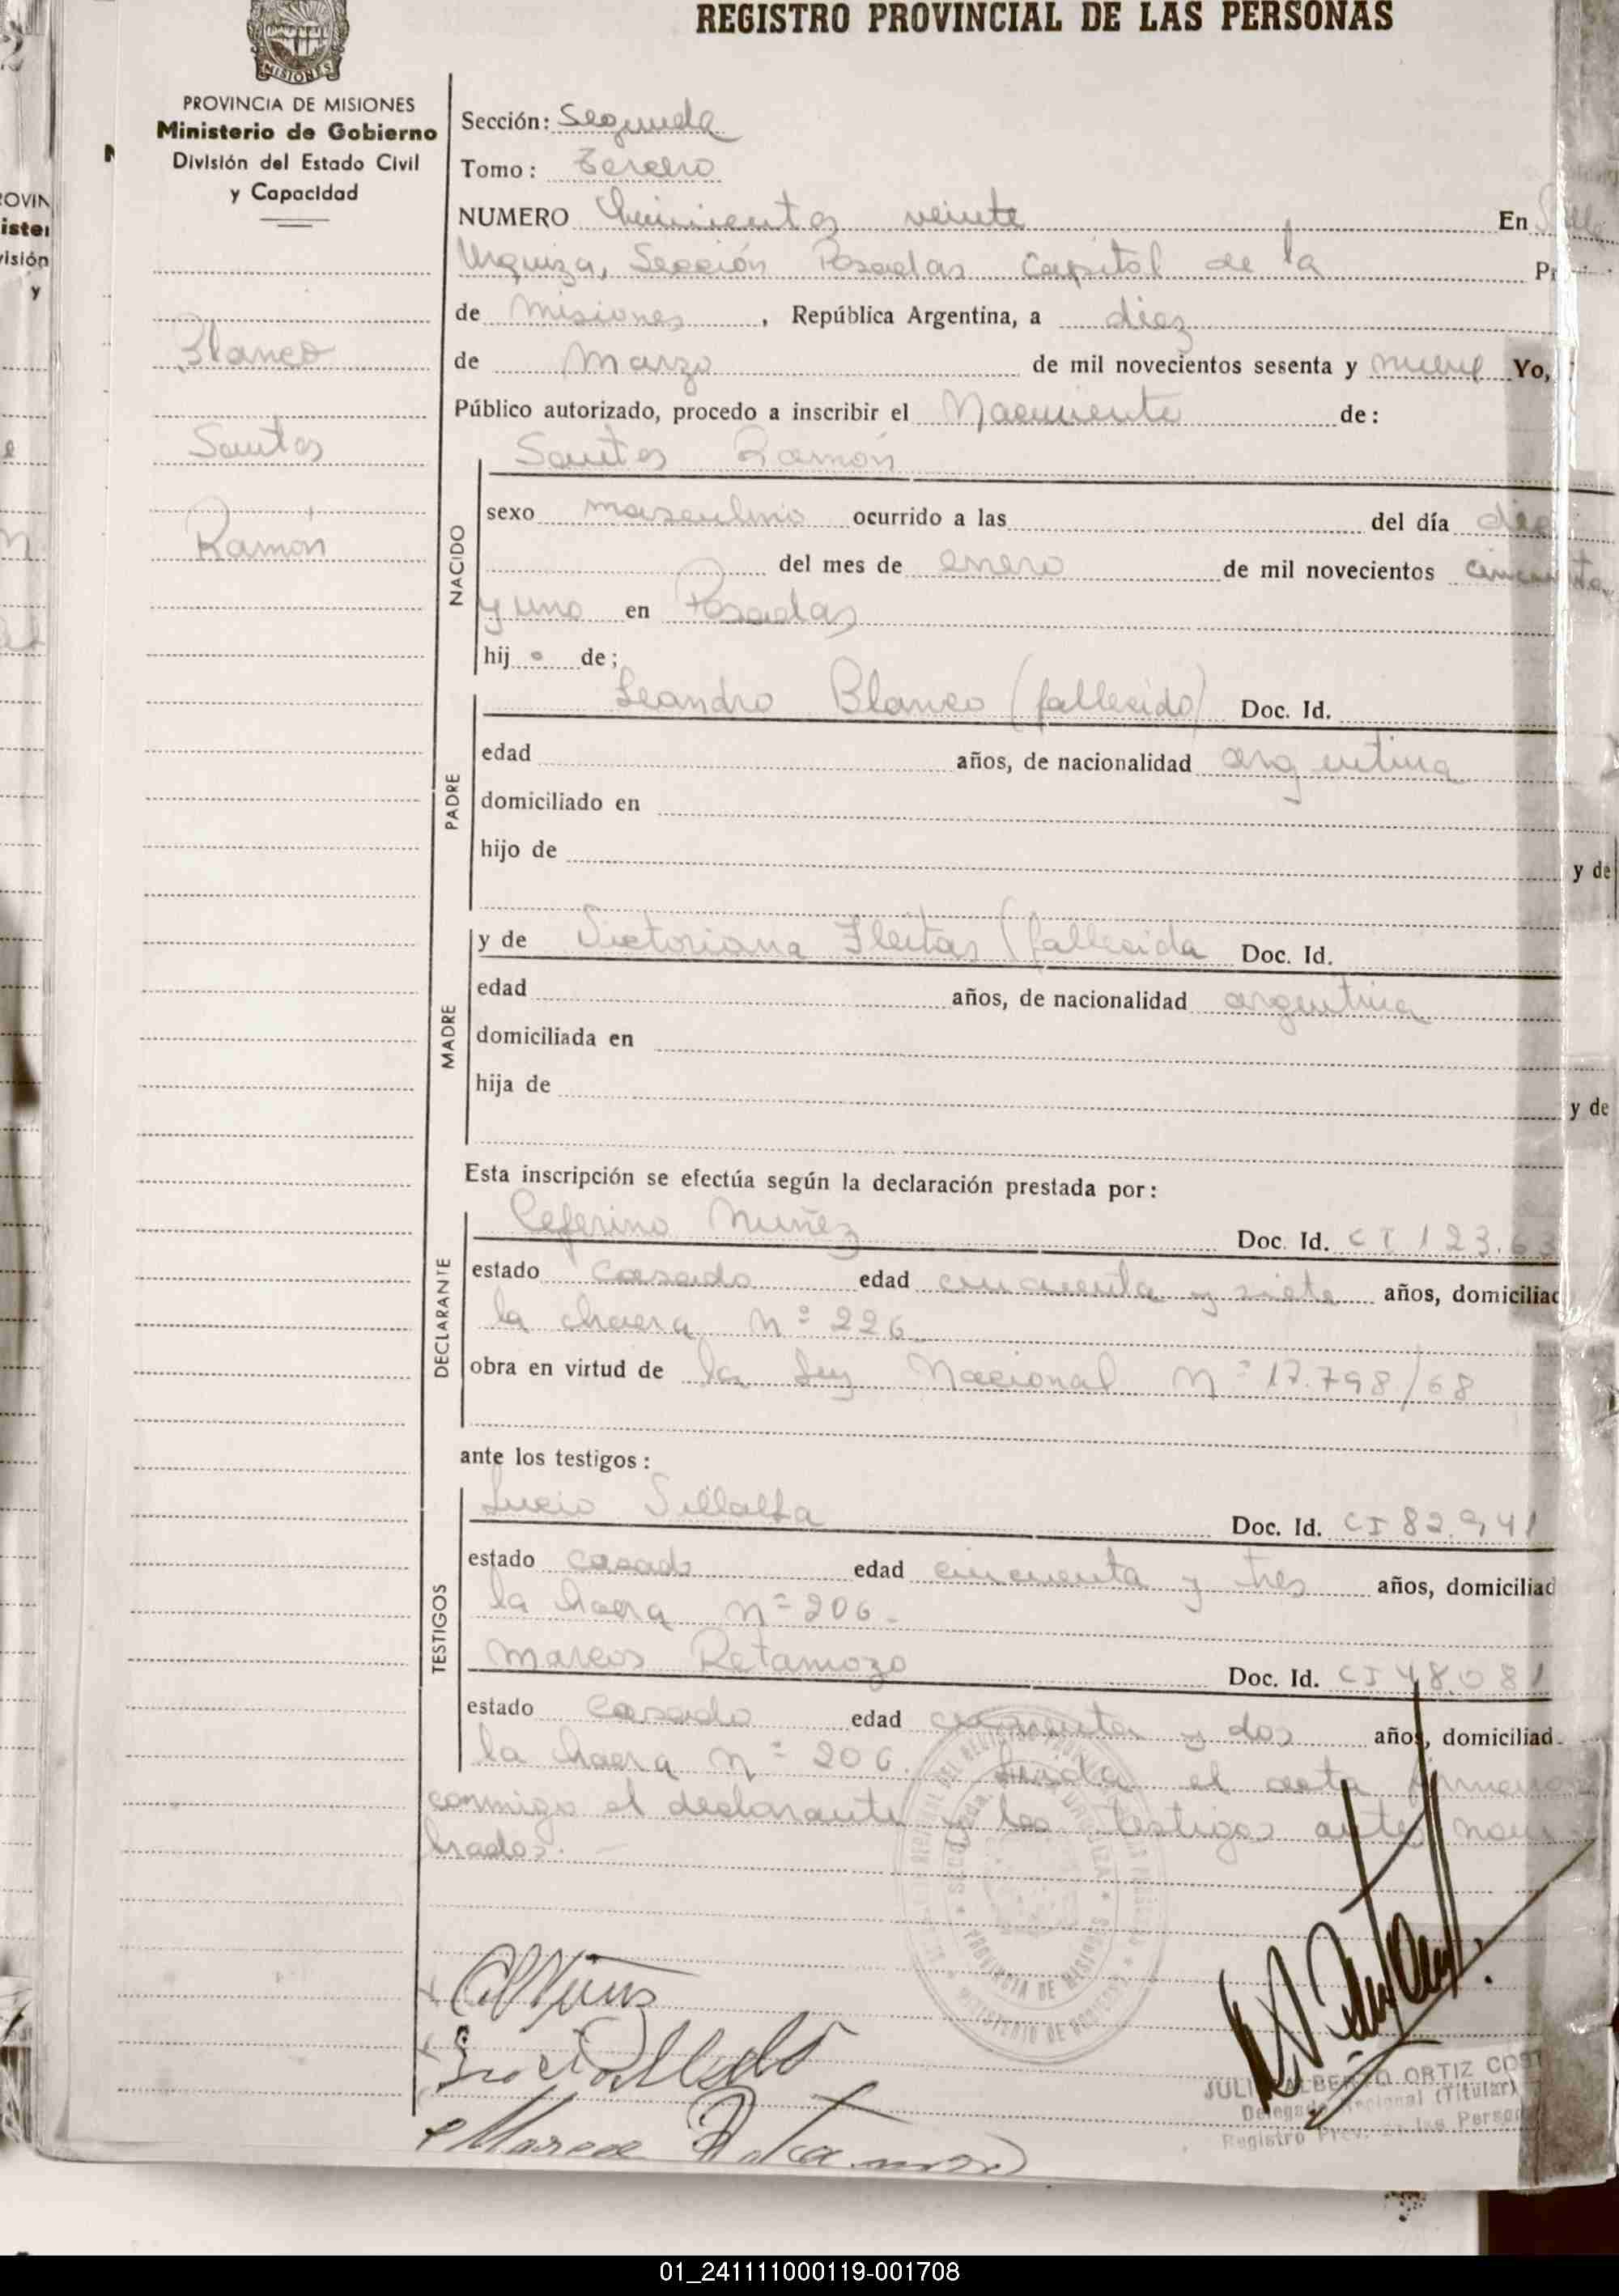 REGISTRO PROVINCIAL DE LAS PERSONAS
MISIONES
PROVINCIA DE MISIONES
Ministerio de Gobierno
División del Estado Civil
y Capacidad
Blanco
Santos
Ramon
Sección: Segunda
Tomo: Tercero
NUMERO Quinientos veinte En Villa
Urquiza, Sección Posadas Capital de la
de Misiones, República Argentina, a diez
de Marzo de mil novecientos sesenta y nueve Yo,
Público autorizado, procedo a inscribir el Nacimiento de:
NACIDO
Santos Ramón
sexo masculino ocurrido a las del día
del mes de enero de mil novecientos cincuenta
y uno en Posadas
hij o de;
PADRE
Leandro Blanco (fallecido) Doc. Id.
edad años, de nacionalidad argentina
domiciliado en
hijo de y de
MADRE
y de Victoriana Fleitas (fallecida Doc. Id.
edad años, de nacionalidad argentina
domiciliada en
hija de y de
Esta inscripción se efectúa según la declaración prestada por:
DECLARANTE
Ceferino Nuñez Doc. Id. CI 123.63
estado casado edad cincuenta y siete años, domiciliad
la chacra nº 226.
obra en virtud de la Ley Nacional Nº 17.798/68
ante los testigos:
TESTIGOS
Lucio Villalba Doc. Id. CI 82.941
estado casado edad cincuenta y tres años, domiciliad
la chacra nº 206.
Marcos Retamozo Doc. Id. CI 48.081
estado casado edad y dos años, domiciliad
la chacra nº 206. Leida el acta firman
conmigo el declarante y los testigos ante nom
brados.-
JULIO ALBERTO ORTIZ COST
Delegado Regional (Titular)
Registro Prov. de las Person
01_241111000119-001708